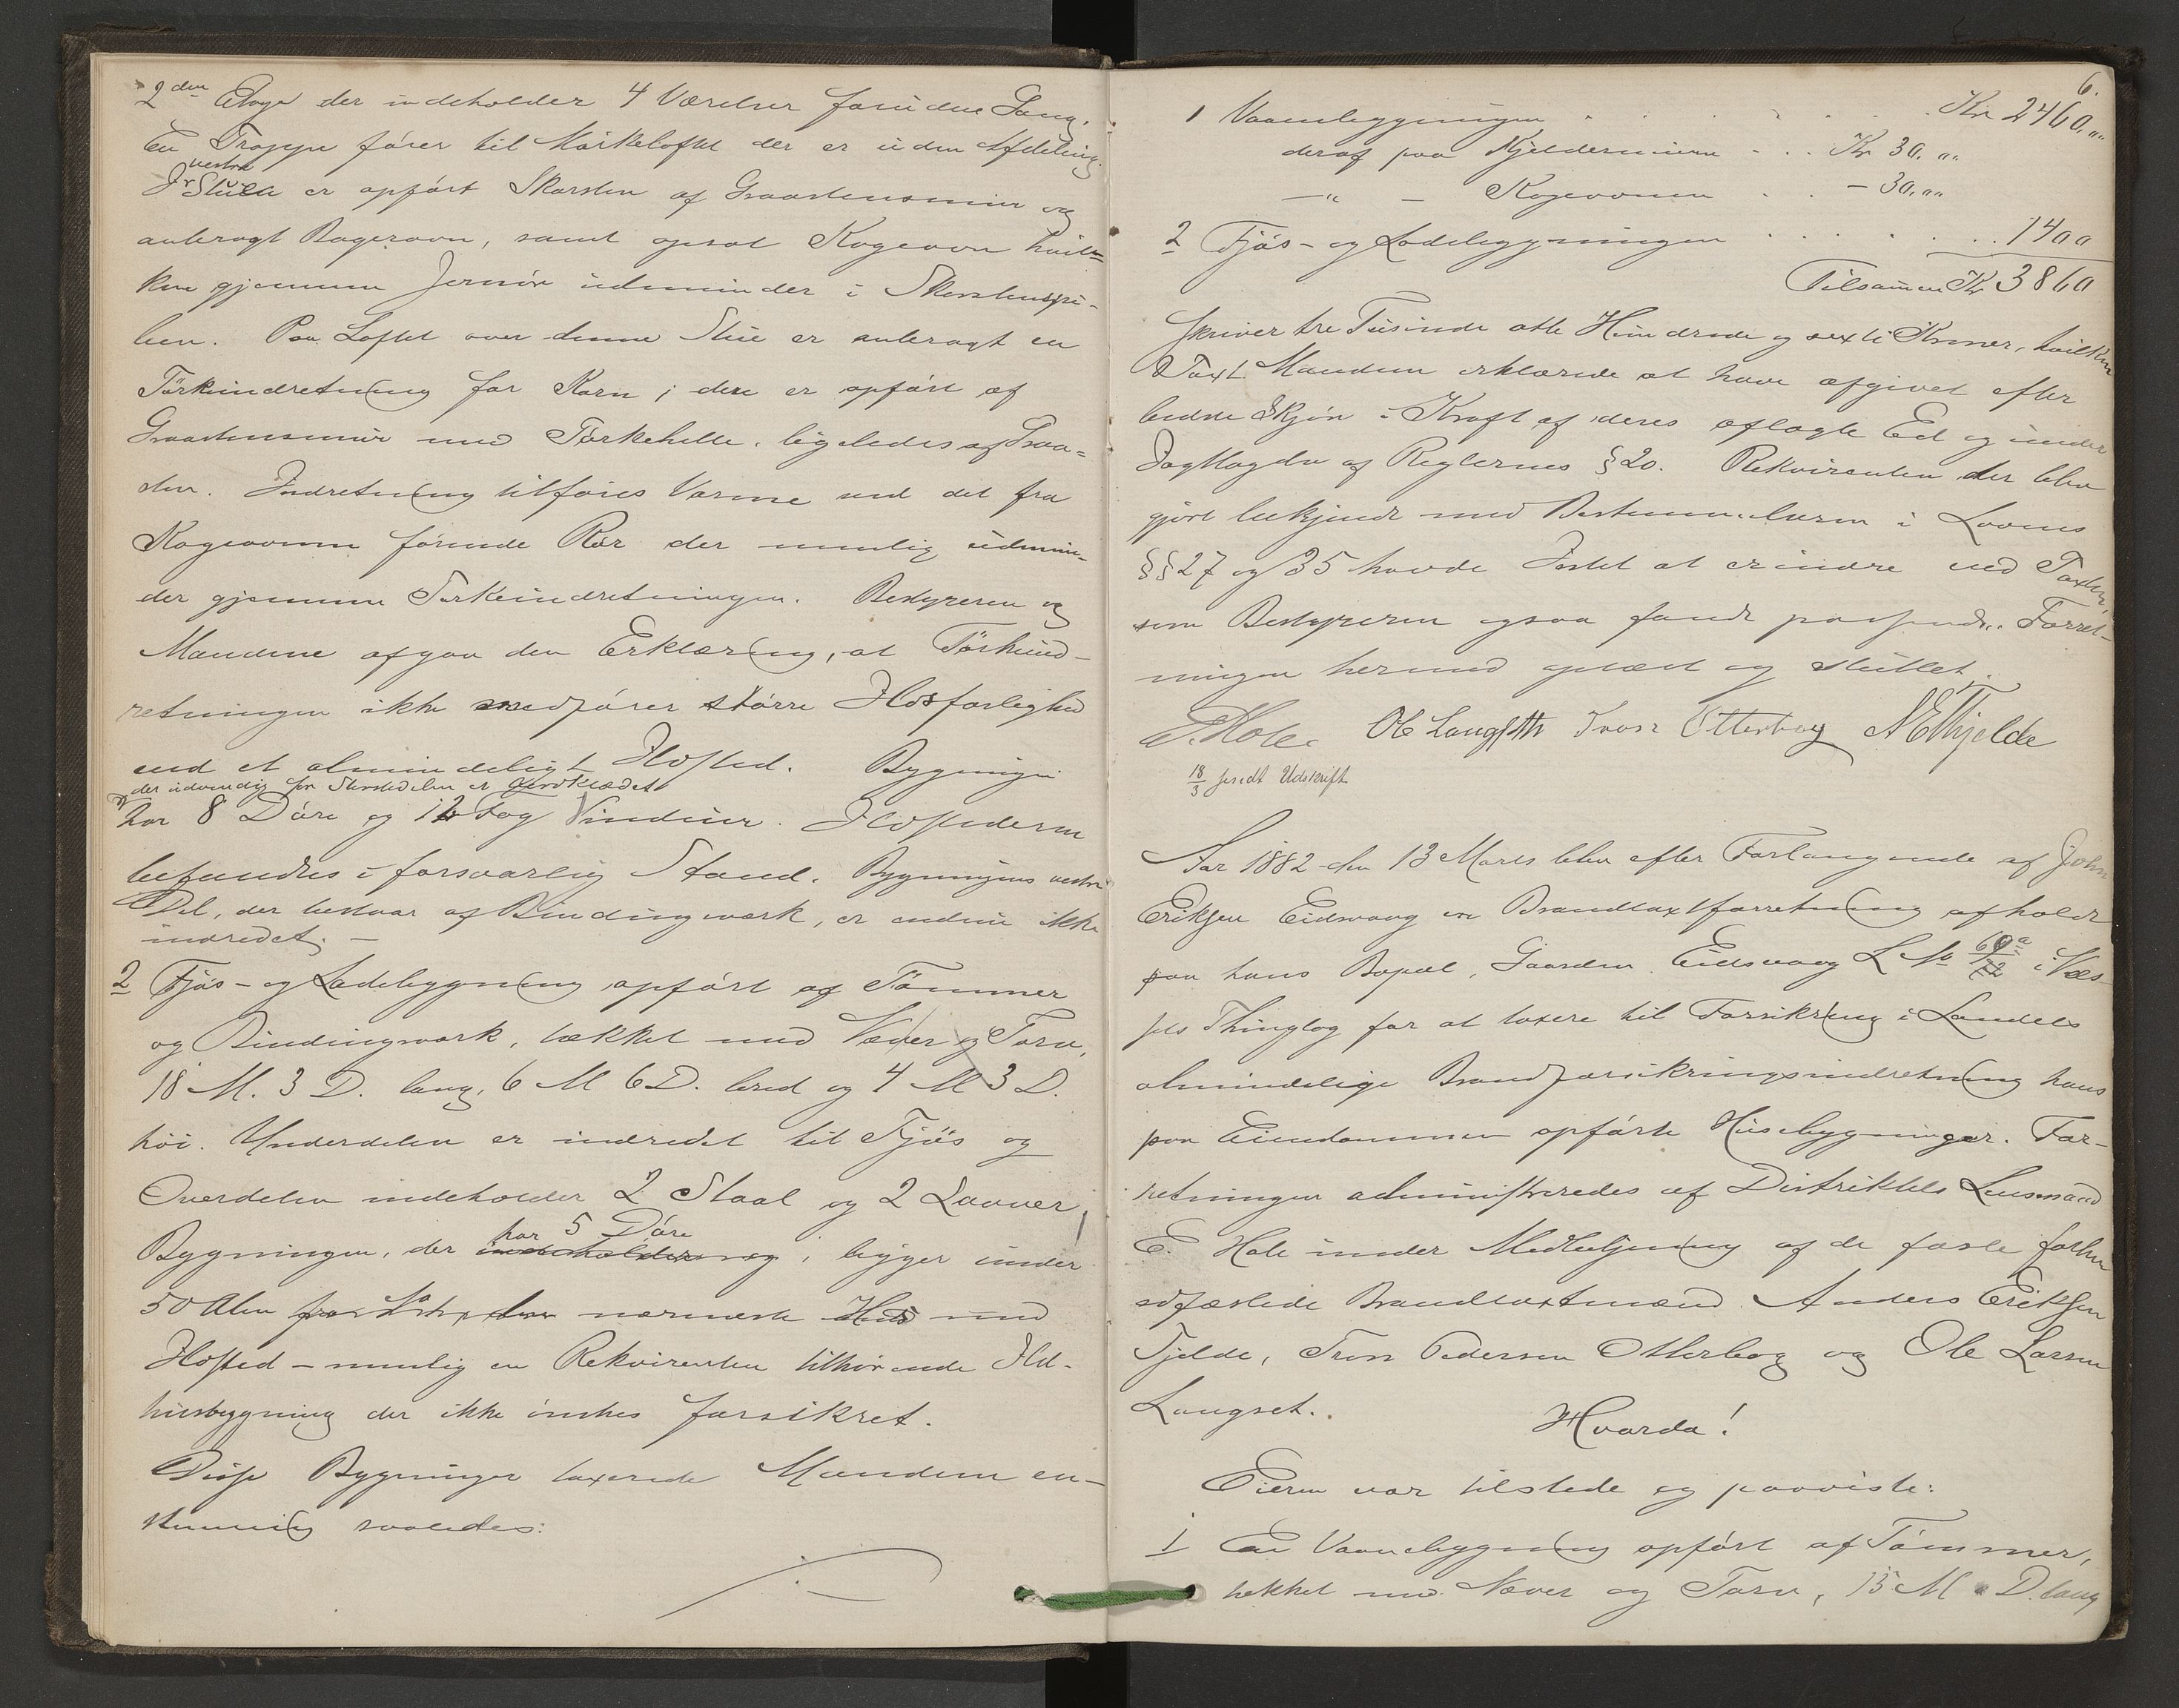 2den Etage der indeholder 4 Værelser foruden Gang.
En Trappe fører til Mørkeloftet der er uden Afdeling.
I vestre Stue er opført Skorsten af Graastensmur og
anbragt Bagerovn, samt opsat Kogeovn hvil-
ken gjennem Jernrør udmunder i Skorstenspi-
ben. Paa Loftet over denne Stue er anbragt en
Tørkeindretning for Korn; den er opført af
Graastensmur med Tørkehelle, ligeledes af Graa-
sten. Indretning tilføres Varme ved det fra
Kogeovnen førende Rør der nemlig udmun-
der gjennem Tørkeindretningen. Bestyreren og
Mændene afgav den Erklæring, at Tørkeind-
retningen ikke medfører større Ildsfarlighed
end et almindeligt Ildsted. Bygningen
der udvendig er bordklædet
har 8 Døre og 12 Fag Vinduer. Ildstederne
befandtes i forsvarlig Stand. Bygningens vestre
Del, der bestaar af Bindingsværk, er endnu ikke
indredet. –
2 Fjøs- og Ladebygning opført af Tømmer
og Bindingværk, tækket med Næver og Torv,
18 M. 3 D. lang, 6 M 6 D. bred og 4 M 3 D.
høi. Underdelen er indredet til Fjøs og
Overdelen indeholder 2 Staal og 2 Laaver.
Bygningen, der har 5 Døre, ligger under
50 Alen fra nærmeste Hus med
Ildsted – nemlig en Rekvirenten tilhørende Ild-
husbygning der ikke ønskes forsikret.
Disse Bygninger taxerede Mændene en-
stemmig saaledes:
6.
1 Vaanebyggningen . . . . . Kr 2460.„„
deraf paa Kjeldermuren . . . Kr 30.„„
—„ — Kogeovnen . . — 30.„„
2 Fjøs- og Ladebyggningen . . . . . . 1400
Tilsammen Kr 3860
skriver tre Tusinde otte Hundrede og sexti Kroner, hvilken
Taxt Mændene erklærede at have afgivet efter
bedste Skjøn i Kraft af deres aflagte Ed og under
Iagttagelse af Reglernes § 20. Rekvirenten der blev
gjort bekjendt med Bestemmelserne i Lovens
§§ 27 og 35 havde Intet at erindre ved Taxten,
som Bestyreren ogsaa fandt passende. Forret-
ningen hermed oplæst og sluttet.
E. Hole. Ole Langseth Iver Otterbog A E Tjelde
18/3 sendt Udskrift
Aar 1882 den 13 Marts blev efter Forlangende af John
Eriksen Eidsvaag en Brandtaxtforretning afholdt
paa hans Bopæl, Gaarden Eidsvaag L No 69a i Næs-
sets Thinglag for at taxere til Forsikring i Landets
almindelige Brandforsikringsindretning hans
paa Eiendommen opførte Husebygninger. For-
retningen administreredes af Distriktets Lensmand
E. Hole under Medbetjening af de faste forhen
edfæstede Brandtaxtmænd Anders Eriksen
Tjelde, Iver Pedersen Otterbog og Ole Larsen
Langset.
Hvorda!
Eieren var tilstede og paaviste:
1 En Vaanebygning opført af Tømmer,
tækket med Næver og Torv, 15 M D. lang